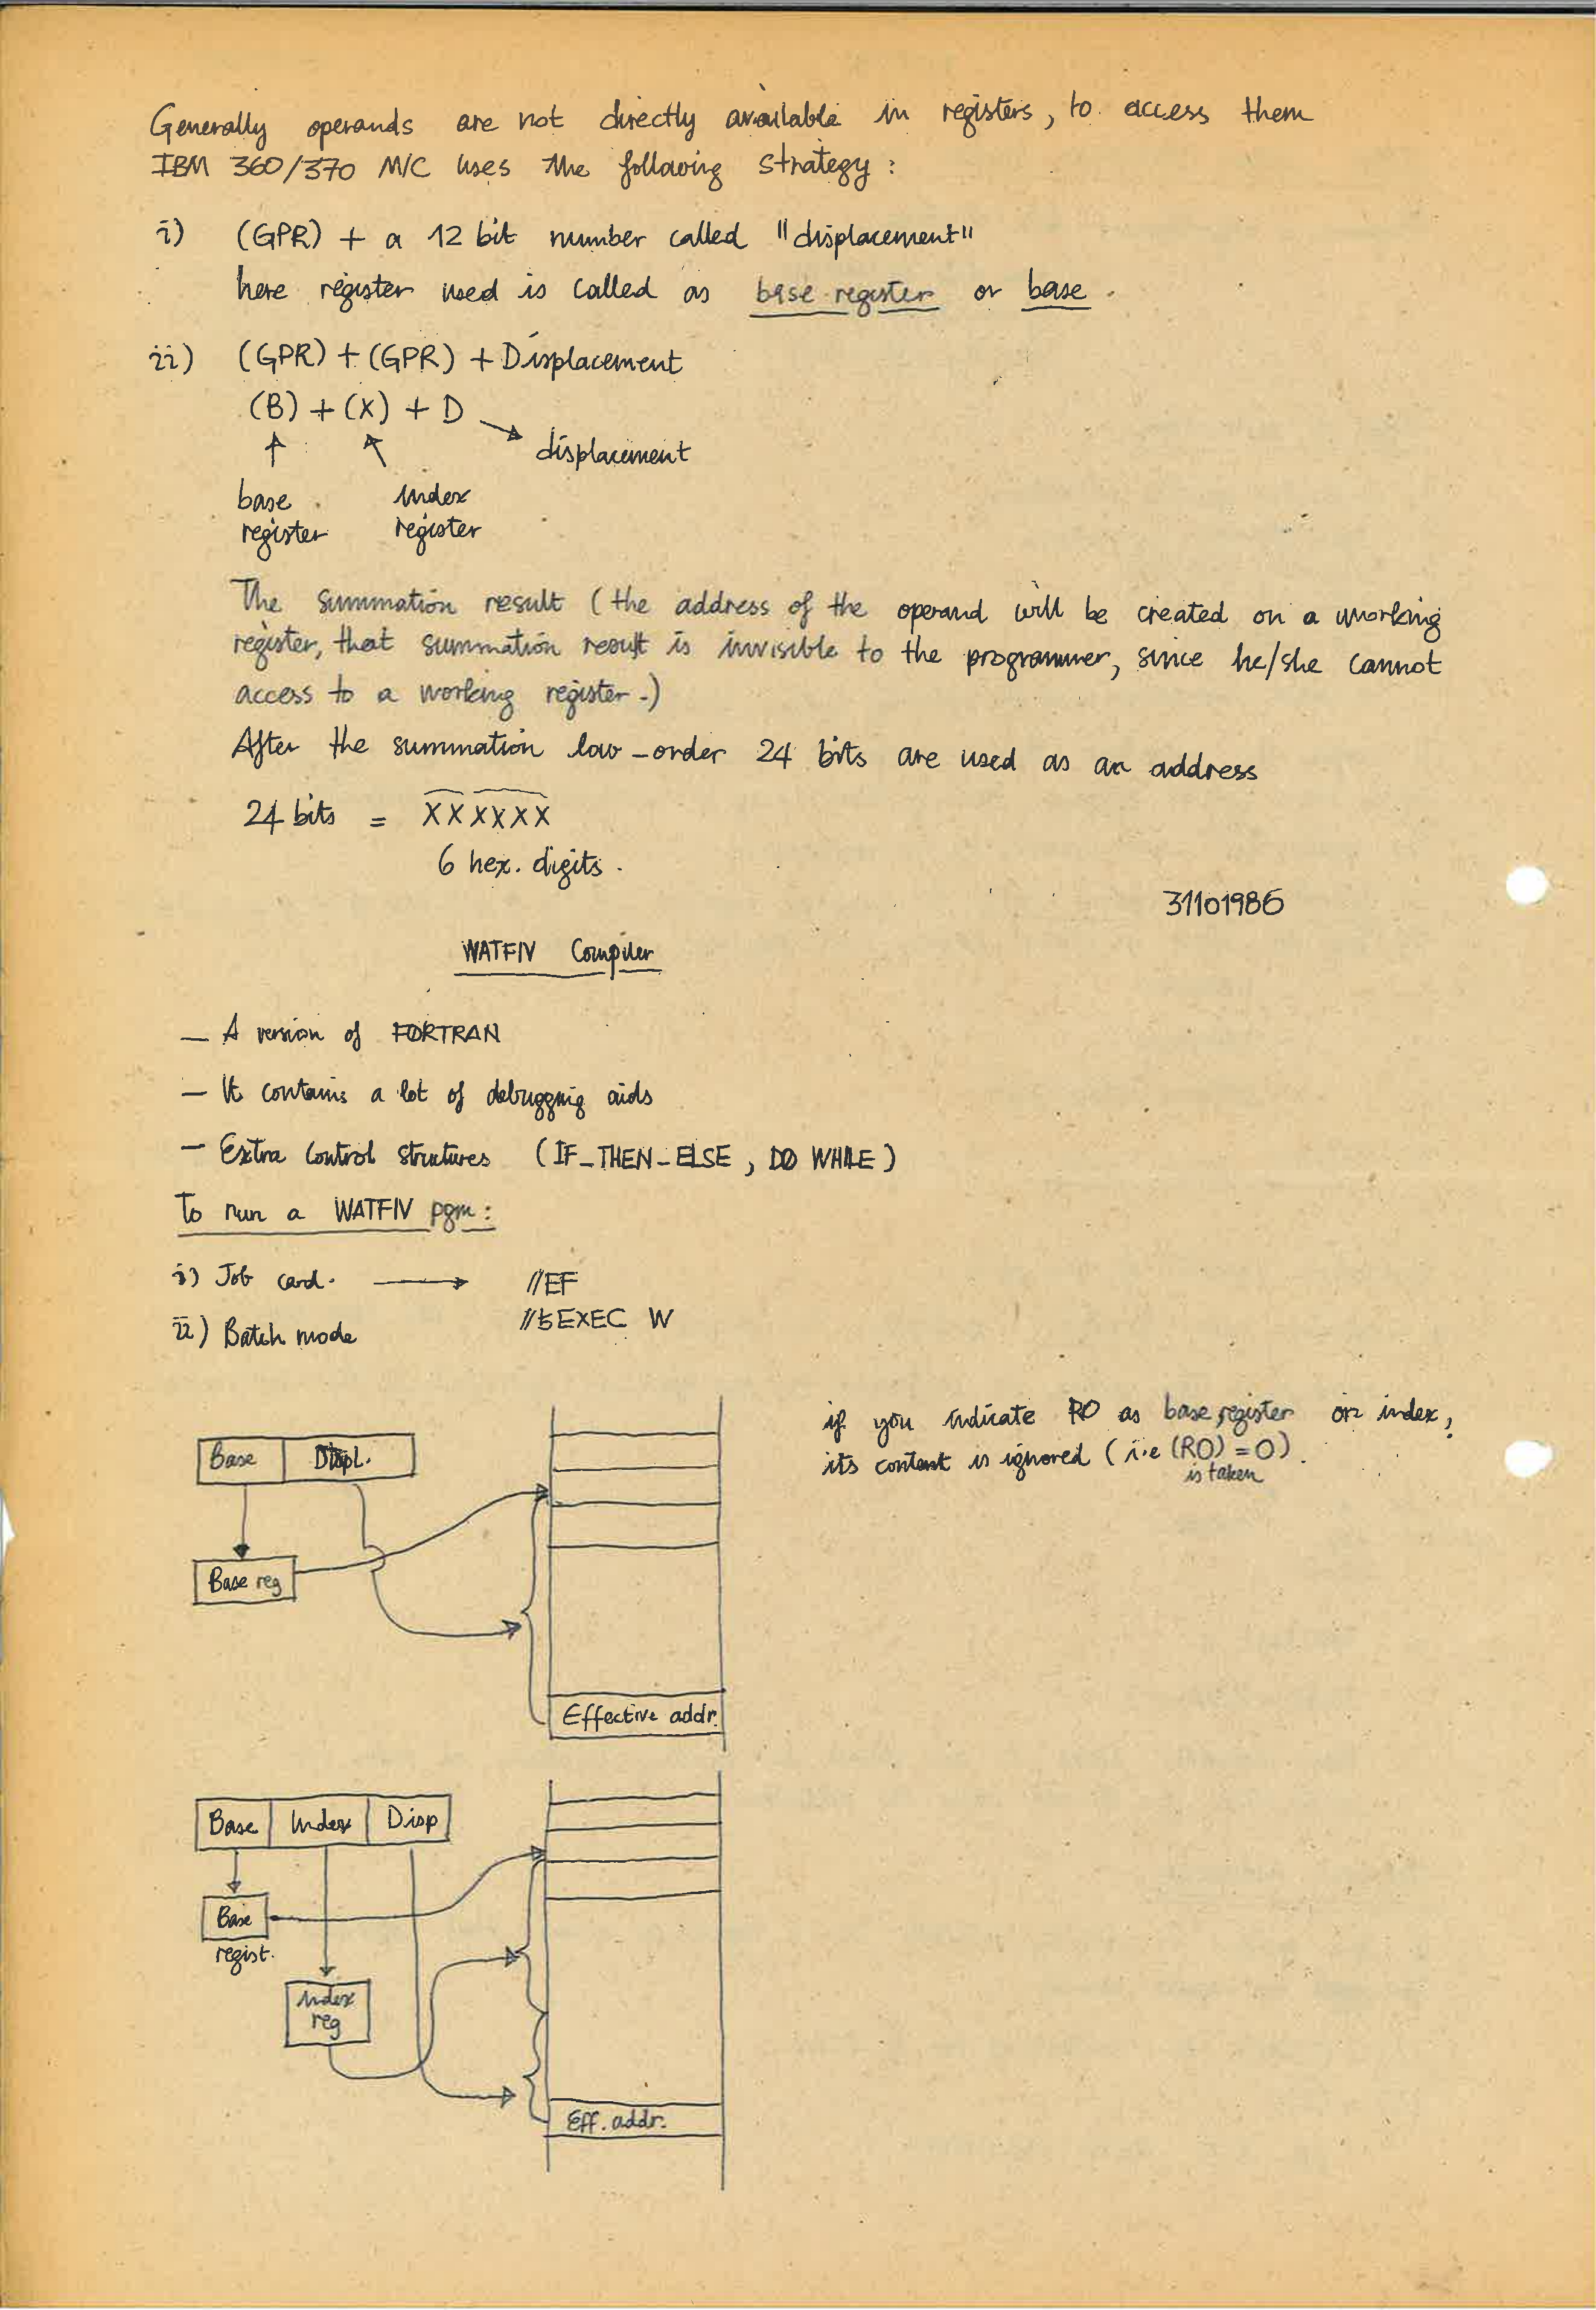 Generally operands are not directly available in registers, to access them
IBM 360/370 M/C uses the following strategy:
i) (GPR) + a 12 bit number called "displacement"
here register used is called as base register or base.
ii) (GPR) + (GPR) + Displacement
(B) + (X) + D
displacement
base register
index register
The summation result (the address of the operand will be created on a working
register, that summation result is invisible to the programmer, since he/she cannot
access to a working register.)
After the summation low-order 24 bits are used as an address
24 bits = XXXXXX
6 hex. digits.
31101986
WATFIV Compiler
— A version of FORTRAN
— It contains a lot of debugging aids
— Extra control structures (IF-THEN-ELSE, DO WHILE)
To run a WATFIV pgm:
i) Job card. → //EF
ii) Batch mode //ƀEXEC W
if you indicate R0 as base register or index,
its content is ignored (i.e (R0) = 0).
is taken
Base Displ.
Base reg
Effective addr.
Base Index Disp
Base
regist.
Index
reg
Eff. addr.